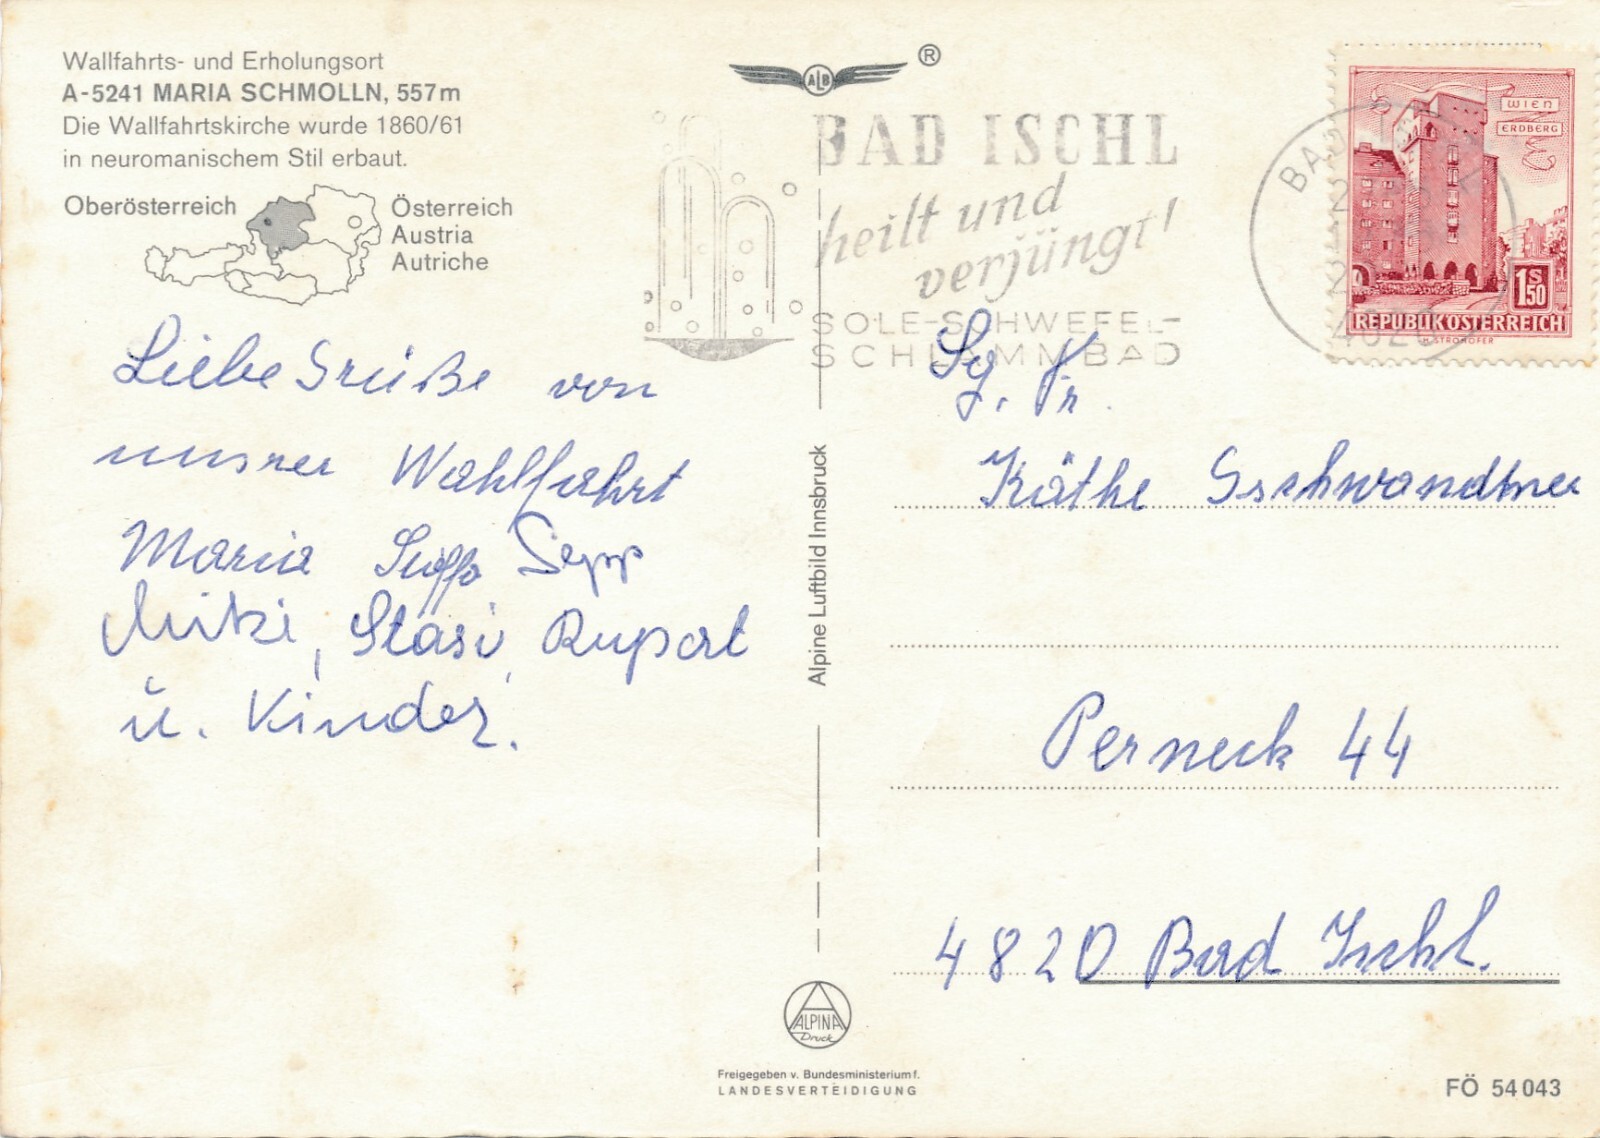 Wallfahrts- und Erholungsort
A-5241 MARIA SCHMOLLN, 557m
Die Wallfahrtskirche wurde 1860/61
in neuromanischem Stil erbaut.
Oberösterreich
Österreich
Austria
Autriche
ALB
®
BAD ISCHL
heilt und
verjüngt!
SOLE-SCHWEFEL-
SCHLAMMBAD
WIEN
ERDBERG
1S50
REPUBLIK ÖSTERREICH
H. STROHOFER
Liebe Grüße von
unsrer Wahlfahrt
Maria Sepp
Mitzi, Stasi, Rupert
u. Kinder.
Alpine Luftbild Innsbruck
Sg. Fr.
Käthe Gschwandtner
Perneck 44
4820 Bad Ischl.
ALPINA
Druck
Freigegeben v. Bundesministerium f.
LANDESVERTEIDIGUNG
FÖ 54043